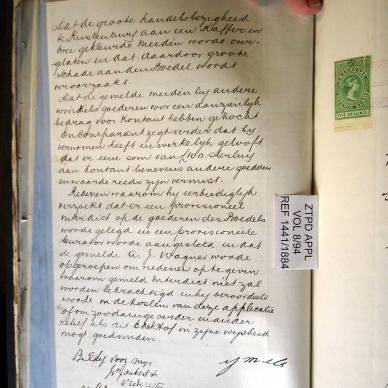 Dat de groote handelsbezigheid
te Rustenburg aan een Kaffer en
twee gekleurde meiden wordt over-
gelaten en dat daardoor groote
schade aan den Boedel wordt
veroorzaakt.
Dat de gemelde meiden by andere
winkels goederen voor een aanzienlyk
bedrag voor Kontant hebben gekocht
En Comparant zegt verder dat hy
vernomen heeft en werkelyk gelooft
dat er eene som van £100. Sterling
aan kontant benevens andere goederen
en waarde reeds zyn vermist.
Redenen waarom hy eerbiediglyk
verzoekt dat er een provisioneel
interdict op de goederen des Boedels
worde gelegd en een provisioneele
Curator worde aangesteld en dat
de gemelde A. J. Wagner worde
opgeroepen om redenen op te geven
waarom gemeld interdict niet zal
worden bekrachtigd en hy veroordeeld
worde in de kosten van deze applicatie
of om zoodanige verder en ander
relief als dit EdelHof in zyne wysheid
mogt goedvinden.
Beëdigd voor my
ZTPD APPL
VOL 8/94
REF 1441/1884
FIVE SHILLINGS